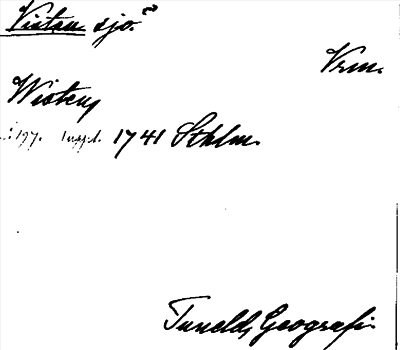 Visten sjö.
Vrm.
Wisten,
s. 197. 1 uppl. 1741 Sthlm.
Tunelds Geografi.